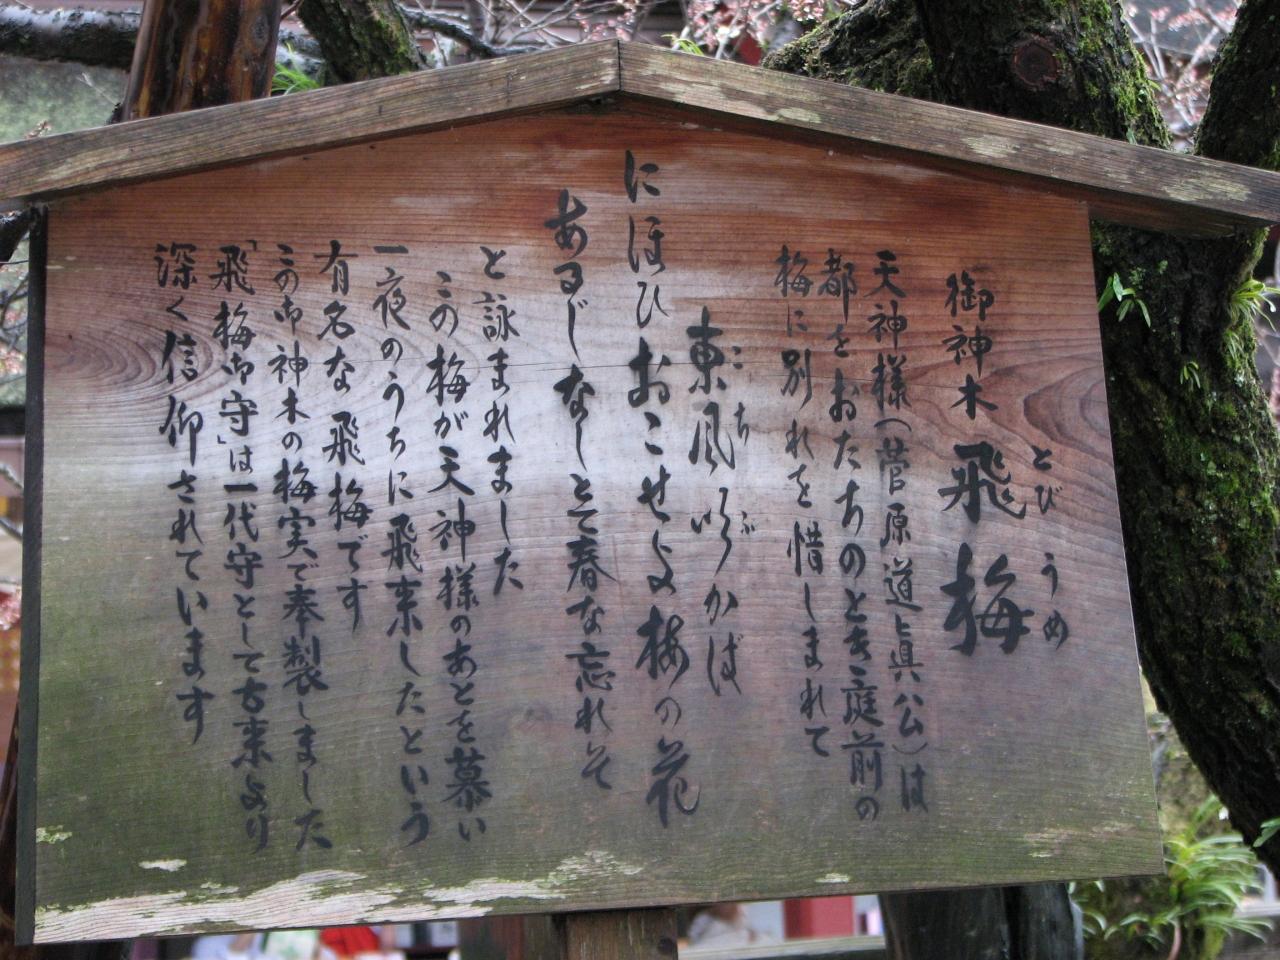 御神木 飛梅
とび うめ
天神様(菅原道眞公)は
都をおたちのとき庭前の
梅に別れを惜しまれて
東風吹かば
こち ぶ
にほひおこせよ梅の花
あるじなしとて春な忘れそ
と詠まれました
この梅が天神様のあとを慕い
一夜のうちに飛来したという
有名な飛梅です
この御神木の梅実で奉製しました
「飛梅御守」は一代守として古来より
深く信仰されています